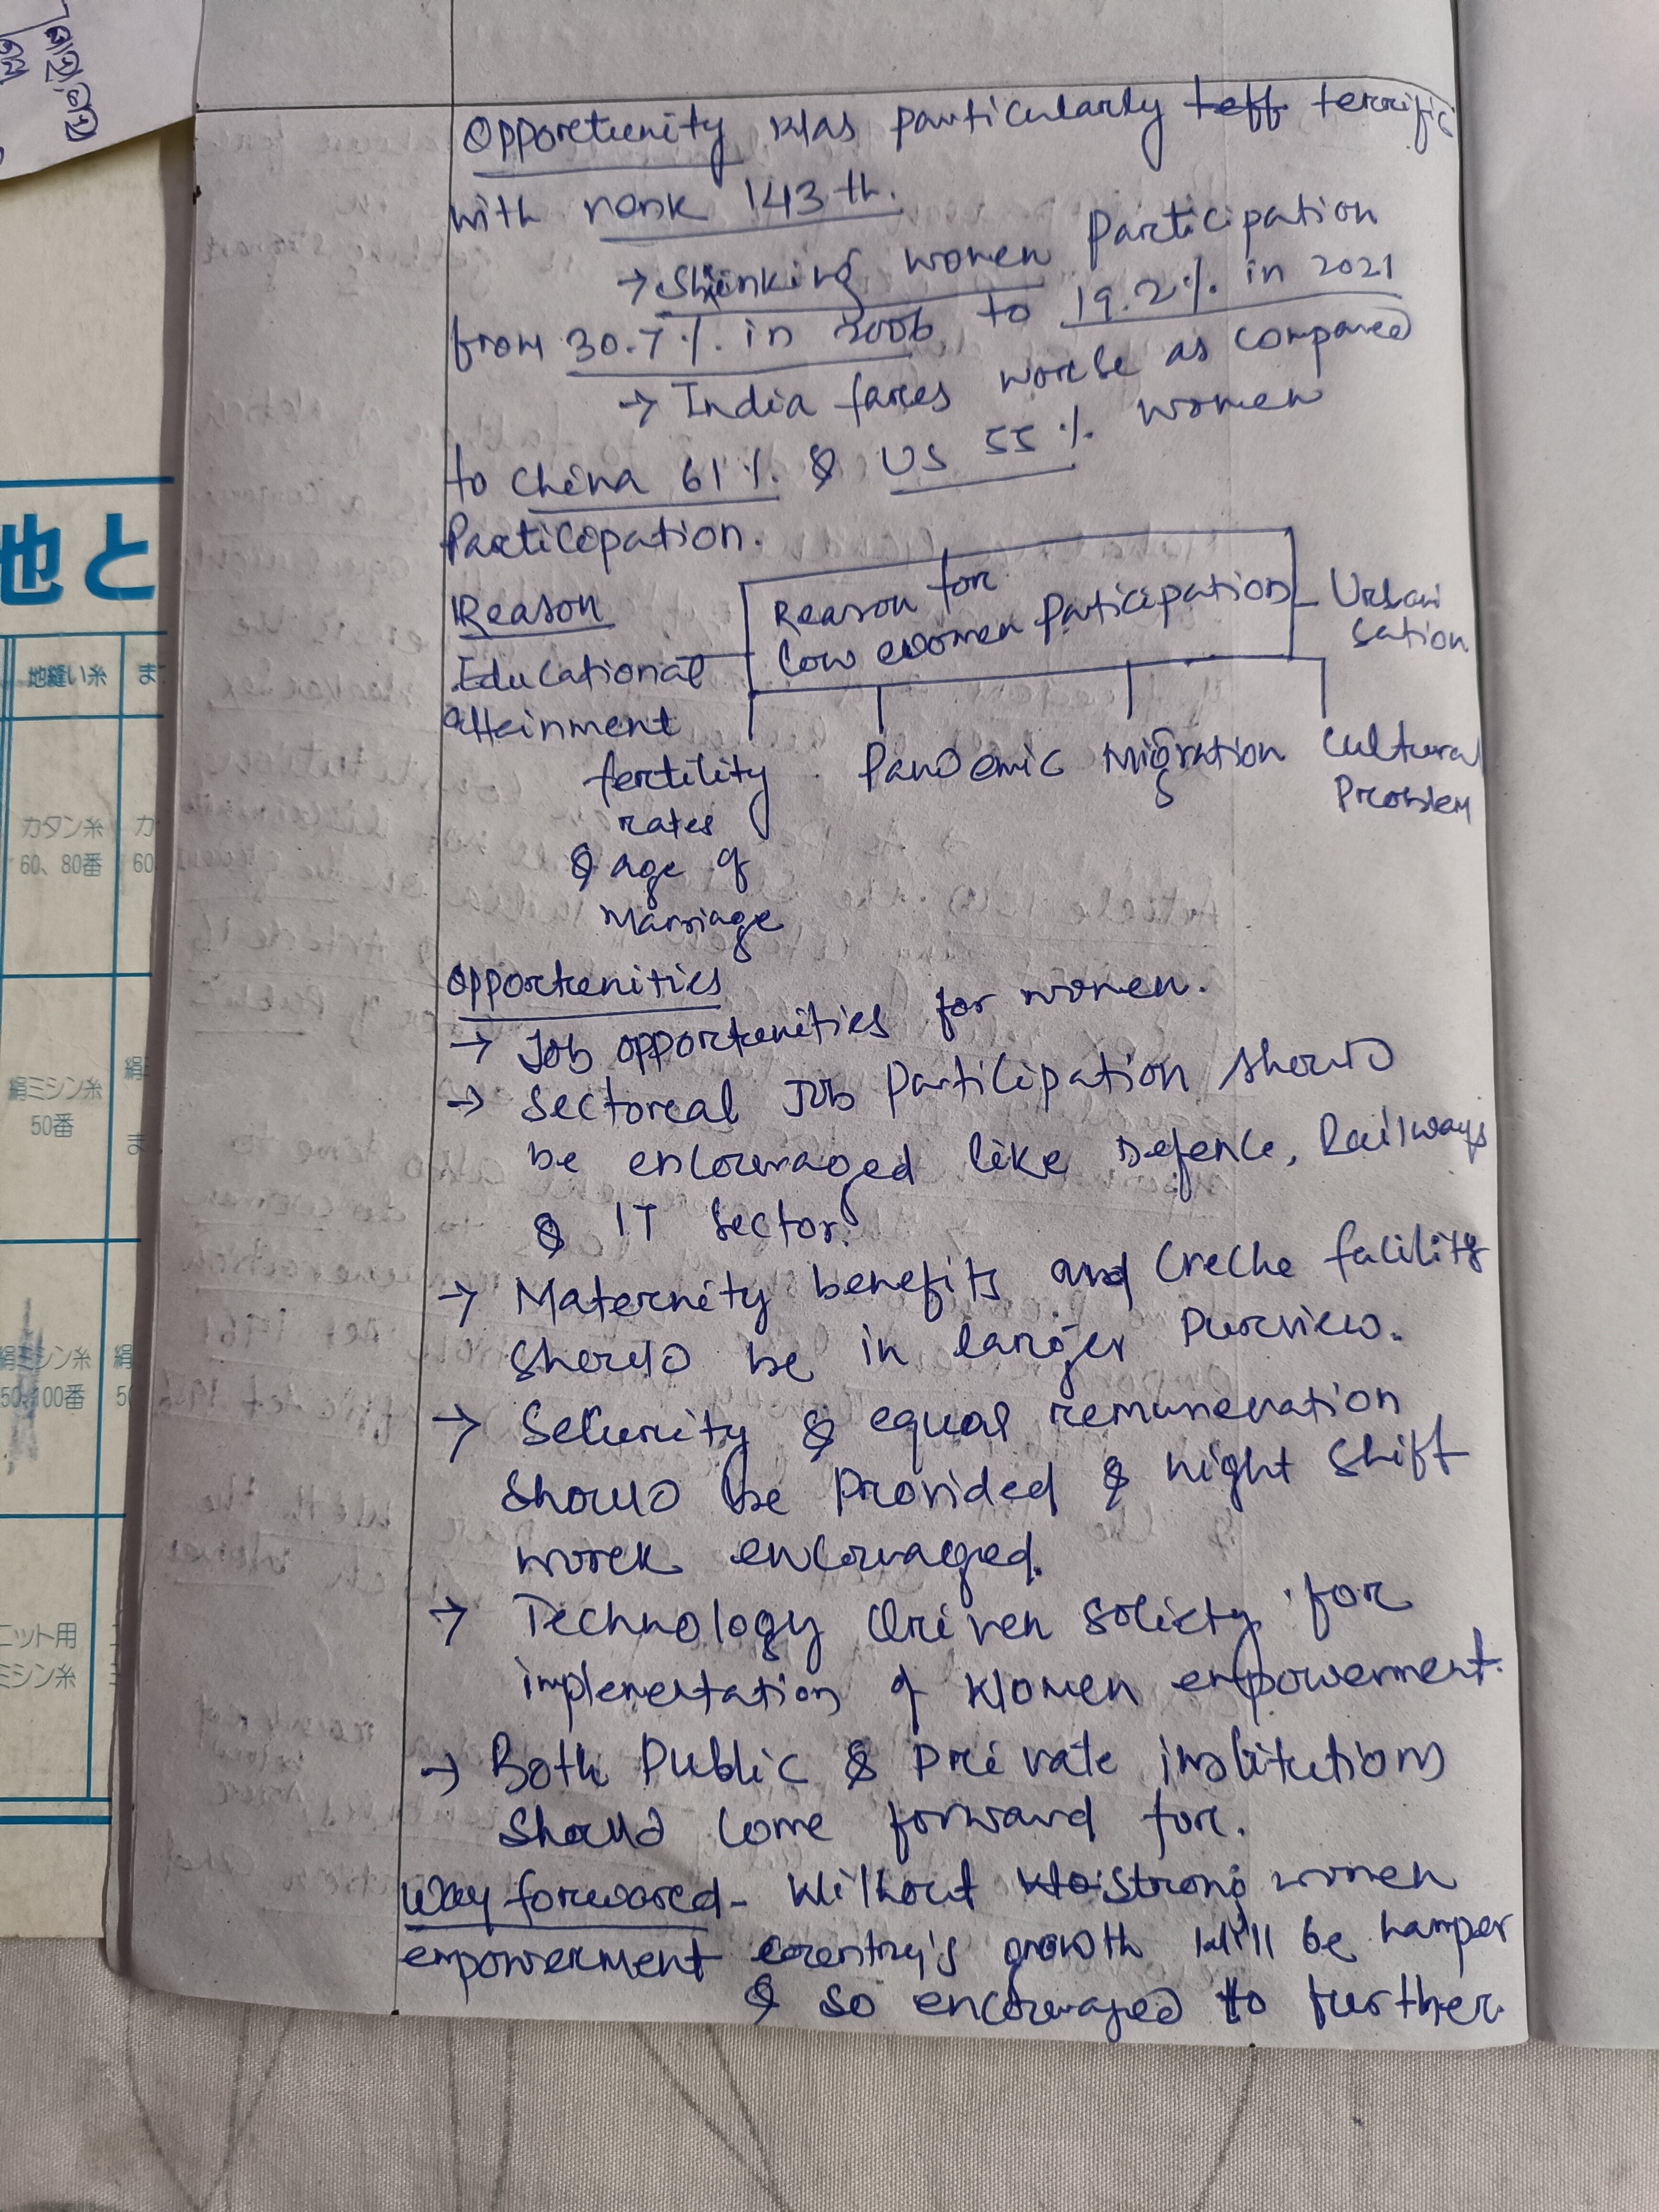 Opportunity was particularly teff terrific
with rank 143th.
→ Shrinking women Participation
from 30.7%. in 2006, to 19.2%. in 2021
→ India fares worse as compared
to China 61%. & US 55%. women
Participation.
Reason
Reason for
low women Paticipation
Urbani
sation
Educational
attainment
fertility
rates
& age of
Marriage
Pandemic
Migration
Cultural
Problem
Opportunities
→ Job opportunities for women.
→ Sectoral Job Participation should
be encouraged like Defence, Railways
& IT sector.
→ Maternity benefits and Creche facility
should be in larger Purview.
→ Security & equal remuneration
should be Provided & night shift
work encouraged.
→ Technology driven society for
implementation of Women empowerment.
→ Both Public & Private institutions
should come forward for.
Way forward - Without wo strong women
empowerment country's growth will be hamper
& so encouraged to further.
也と
地縫い糸
ま
カタン糸
60、80番
カ
60
絹ミシン糸
50番
絹
ま
絹ミシン糸
50、100番
絹
50
ニット用
ミシン糸